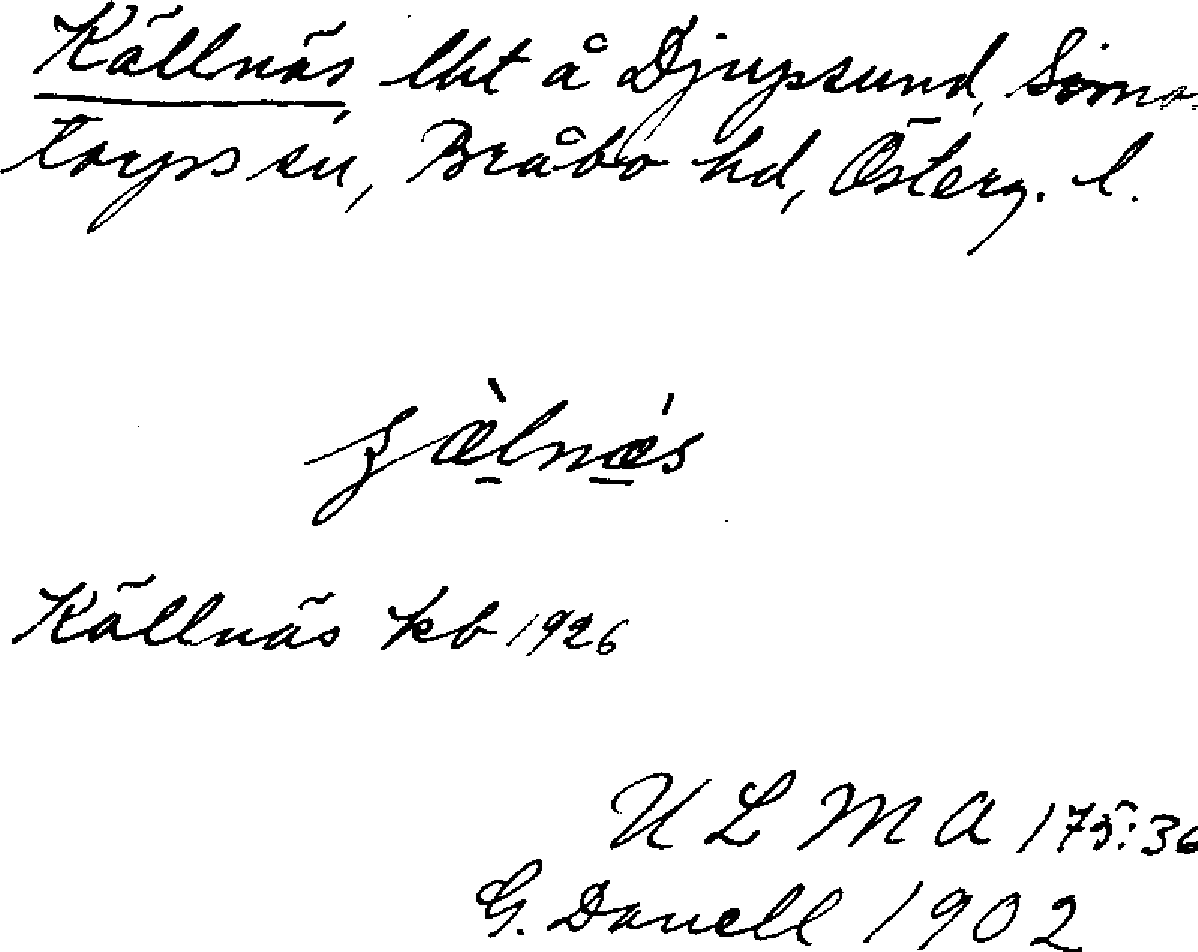 Källnäs, lht å Djupsund, Simo-
torps sn, Bråbo hd, Österg. l.
Källnäs kb 1926
U L M A 175:36
G. Danell 1902